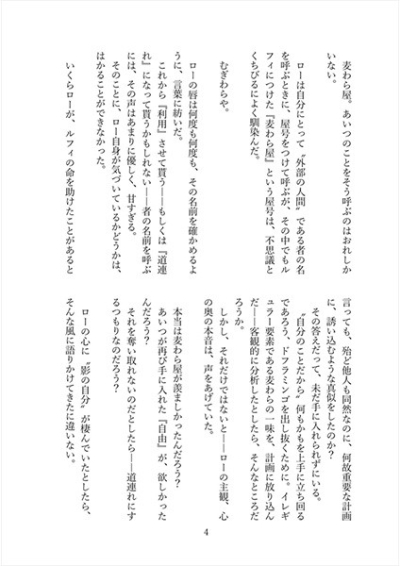 麦わら屋。あいつのことをそう呼ぶのはおれしか
いない。
ローは自分にとって〝外部の人間〟である者の名
を呼ぶときに、屋号をつけて呼ぶが、その中でもル
フィにつけた『麦わら屋』という屋号は、不思議と
くちびるによく馴染んだ。
むぎわらや。
ローの唇は何度も何度も、その名前を確かめるよ
うに、言葉に紡いだ。
これから『利用』させて貰う——もしくは『道連
れ』になって貰うかもしれない——者の名前を呼ぶ
には、その声はあまりに優しく、甘すぎる。
そのことに、ロー自身が気づいているかどうかは、
はかることができなかった。
いくらローが、ルフィの命を助けたことがあると
言っても、殆ど他人も同然なのに、何故重要な計画
に、誘い込むような真似をしたのか？
その答えだって、未だ手に入れられずにいる。
〝自分のことだから〟何もかもを上手に立ち回る
であろう、ドフラミンゴを出し抜くために。イレギ
ュラー要素である麦わらの一味を、計画に放り込ん
だ——客観的に分析したとしたら、そんなところだ
ろうか。
しかし、それだけではないと——ローの主観、心
の奥の本音は、声をあげていた。
本当は麦わら屋が羨ましかったんだろう？
あいつが再び手に入れた『自由』が、欲しかった
んだろう？
それを奪い取れないのだとしたら——道連れにす
るつもりなのだろう？
ローの心に〝影の自分〟が棲んでいたとしたら、
そんな風に語りかけてきたに違いない。
4